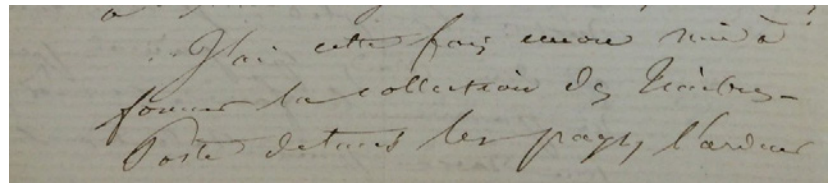 J'ai cette fois encore mis à
former la collection des Timbres-
Poste de tous les pays, l'ardeur